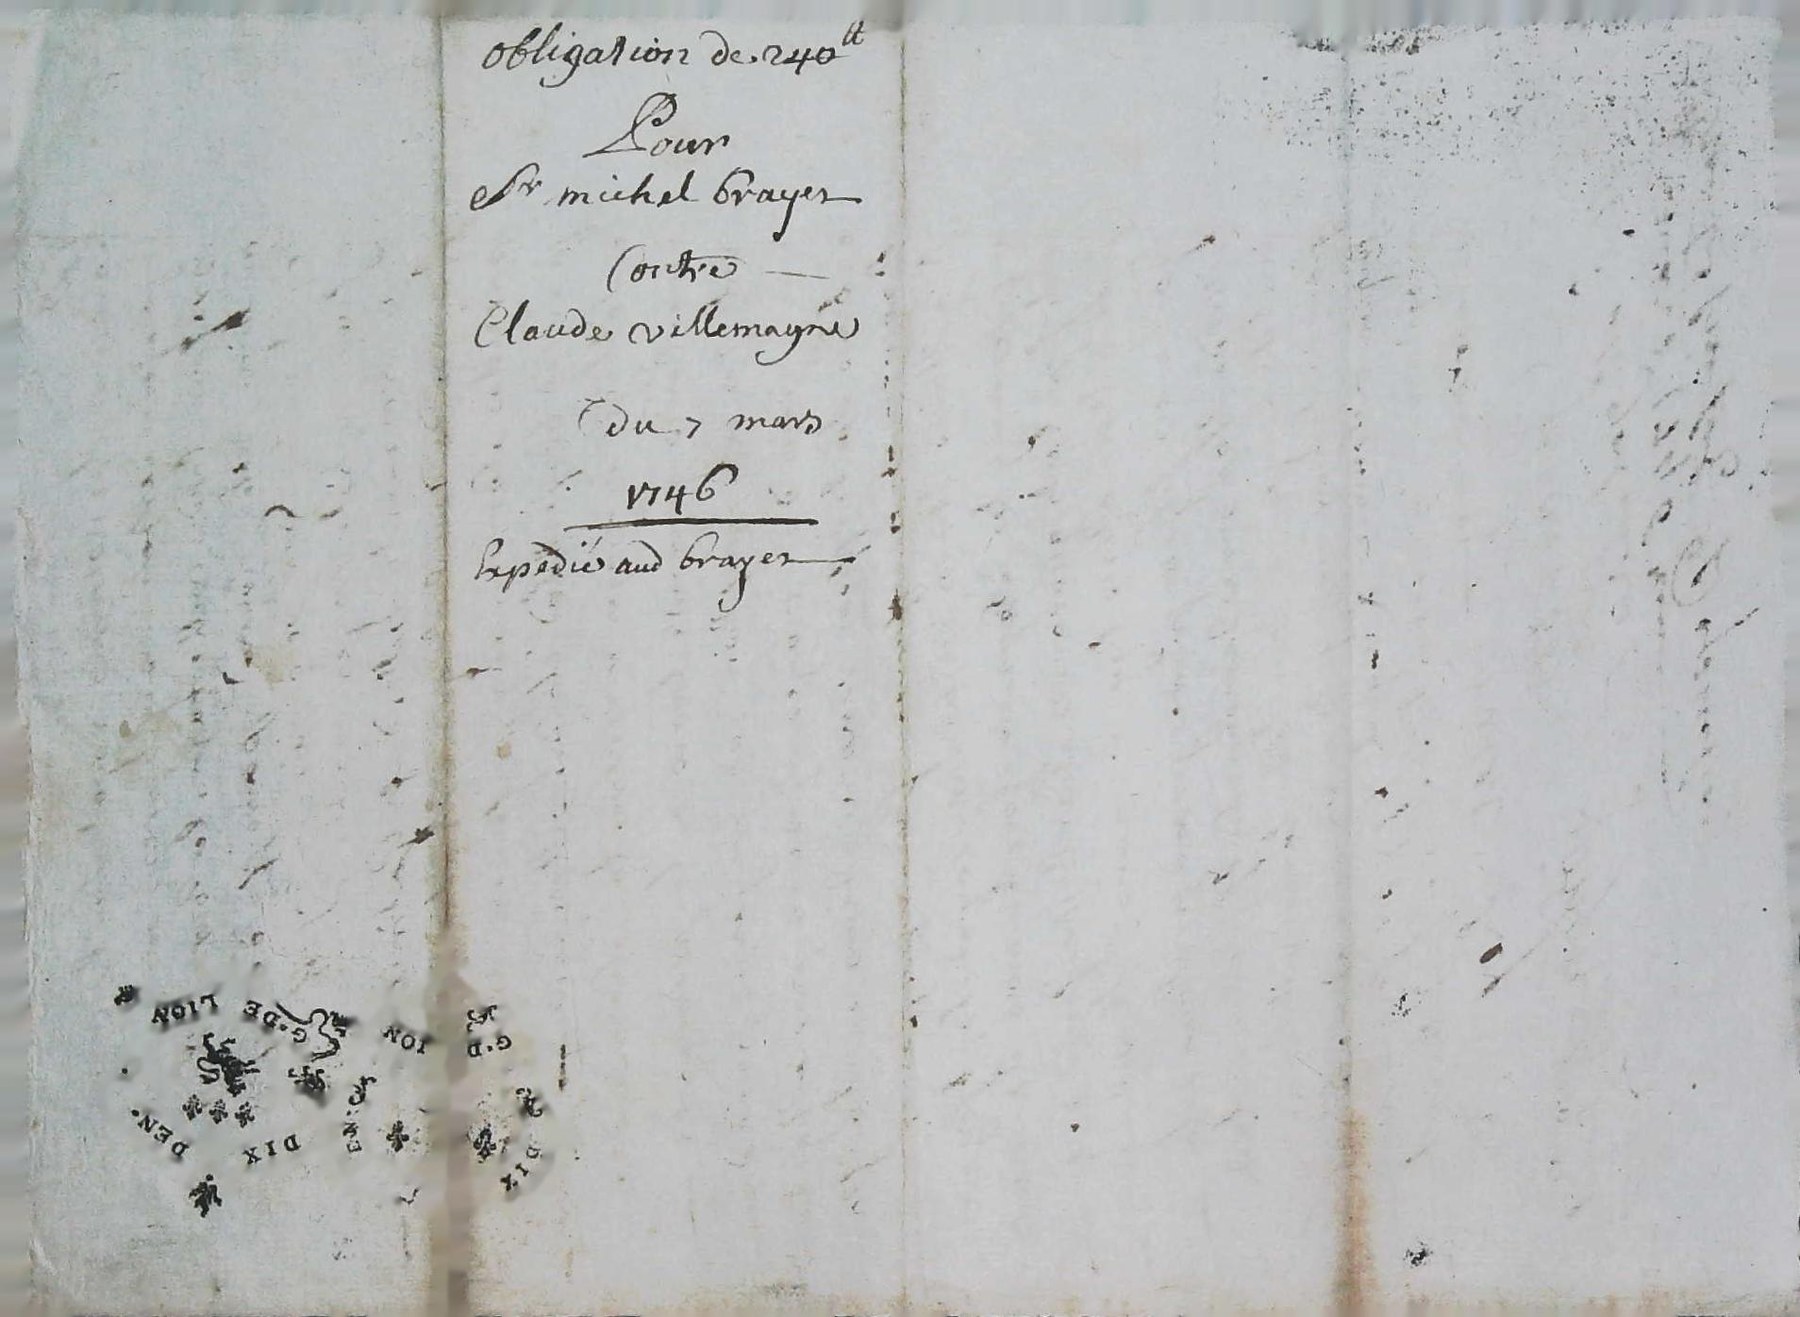 obligation de 240ᵗᵗ
Pour
Sr michel brayer
Contre
Claude villemagne
du 7 mars
1746
Expedié aud brayer
G·DE LION
ION
G·D
DIX DEN.
DIX